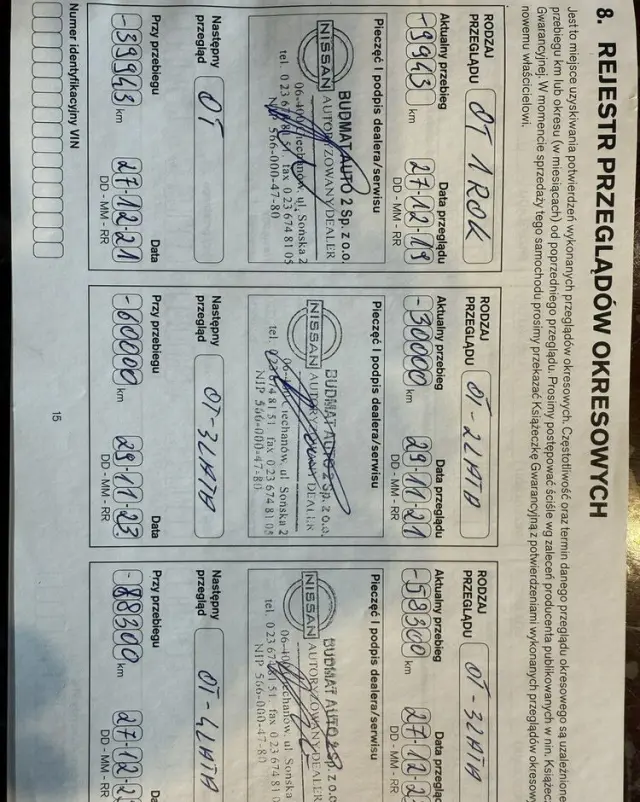 8. REJESTR PRZEGLĄDÓW OKRESOWYCH
Jest to miejsce uzyskiwania potwierdzeń wykonanych przeglądów okresowych. Częstotliwość oraz termin danego przeglądu okresowego są uzależnione
przebiegu km lub okresu (w miesiącach) od poprzedniego przeglądu. Prosimy postępować ściśle wg zaleceń producenta publikowanych w nin. Książec
Gwarancyjnej. W momencie sprzedaży tego samochodu prosimy przekazać Książeczkę Gwarancyjną z potwierdzeniami wykonanych przeglądów okresow
nowemu właścicielowi.
RODZAJ
PRZEGLĄDU OT 1 ROK
Aktualny przebieg Data przeglądu
-9943 km 27-12-19
DD - MM - RR
Pieczęć i podpis dealera/serwisu
BUDMAT AUTO 2 Sp. z o.o.
AUTORYZOWANY DEALER
NISSAN
06-400 Ciechanów, ul. Sońska 2
tel. 0 23 674 81 51, fax 0 23 674 81 05
NIP 566-000-47-80
Następny
przegląd OT
Przy przebiegu Data
-39943 km 27-12-21
DD - MM - RR
RODZAJ
PRZEGLĄDU OT-2LATA
Aktualny przebieg Data przeglądu
-30000 km 29-11-21
DD - MM - RR
Pieczęć i podpis dealera/serwisu
BUDMAT AUTO 2 Sp. z o.o.
AUTORYZOWANY DEALER
NISSAN
06-400 Ciechanów, ul. Sońska 2
tel. 0 23 674 81 51 fax 0 23 674 81 05
NIP 566-000-47-80
Następny
przegląd OT-3LATA
Przy przebiegu Data
-60000 km 29-11-23
DD - MM - RR
RODZAJ
PRZEGLĄDU OT-3LATA
Aktualny przebieg Data przegląd
-58300 km 27-12-2
DD - MM - R
Pieczęć i podpis dealera/serwisu
BUDMAT AUTO 2 Sp. z o.
AUTORYZOWANY DEALER
NISSAN
06-400 Ciechanów, ul. Sońska
tel. 0 23 674 81 51, fax 0 23 674 81 0
NIP 566-000-47-80
Następny
przegląd OT-4LATA
Przy przebiegu Data
-88300 km 27-12-2
DD - MM - RR
Numer identyfikacyjny VIN
15